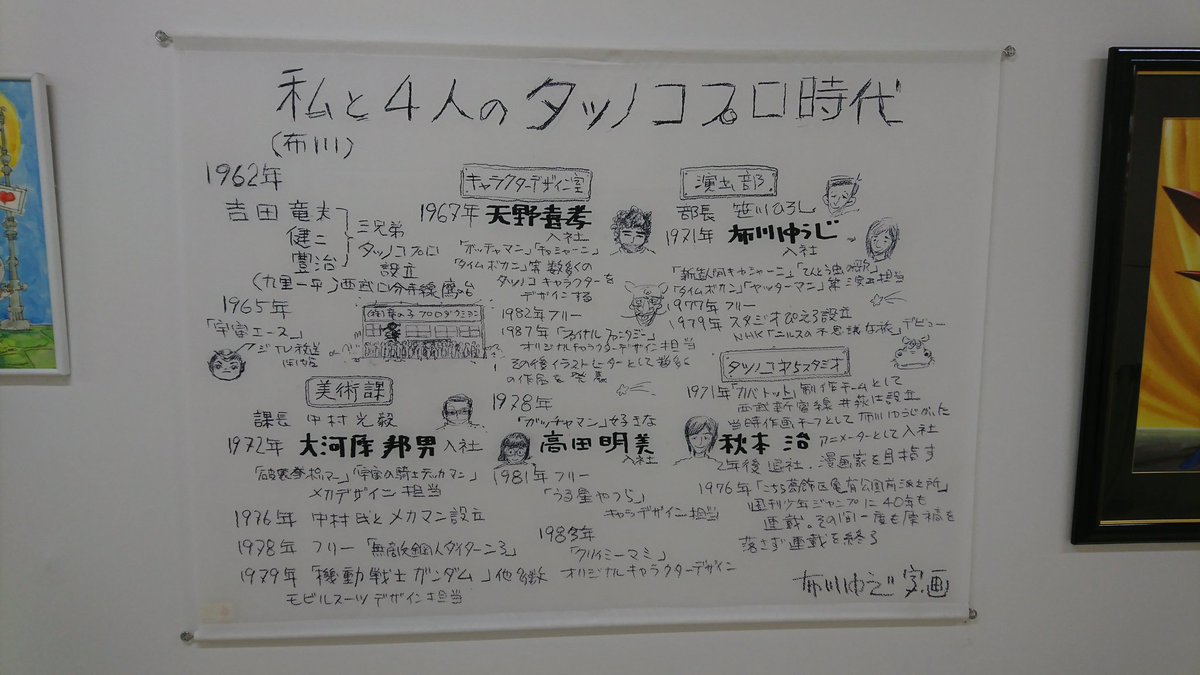 私と4人のタツノコプロ時代
(布川)
1962年
吉田竜夫
健二
豊治
三兄弟
タツノコプロ
設立
(九里一平)西武国分寺線鷹の台
1965年
「宇宙エース」
フジテレビ放送
開始
(株)竜の子プロダクション
キャラクターデザイン室
1967年 天野喜孝
入社
「ガッチャマン」「キャシャーン」
「タイムボカン」等数多くの
タツノコキャラクターを
デザインする
1982年フリー
1987年「ファイナルファンタジー」
オリジナルキャラクターデザイン担当
その後イラストレーターとして数多く
の作品を発表
演出部
部長 笹川ひろし
1971年 布川ゆうじ
入社
「新造人間キャシャーン」「てんとう虫の歌」
「タイムボカン」「ヤッターマン」等演出担当
1977年フリー
1979年スタジオぴえろ設立
NHK「ニルスの不思議な旅」デビュー
美術課
課長 中村光毅
1972年 大河原邦男 入社
「破裏拳ポリマー」「宇宙の騎士テッカマン」
メカデザイン担当
1976年 中村氏とメカマン設立
1978年 フリー「無敵鋼人ダイターン3」
1979年「機動戦士ガンダム」他多数
モビルスーツデザイン担当
1978年
「ガッチャマン」大好きな
高田明美
入社
1981年フリー
「うる星やつら」
キャラデザイン担当
1983年
「クリィミーマミ」
オリジナルキャラクターデザイン
タツノコ第5スタジオ
1971年「カバトット」制作チームとして
西武新宿線井荻に設立
当時作画チーフとして布川ゆうじがいた
秋本治 アニメーターとして入社
2年後退社.漫画家を目指す
1976年「こちら葛飾区亀有公園前派出所」
週刊少年ジャンプに40年も
連載。その間一度も原稿を
落さず連載を終了
布川ゆうじ 字画